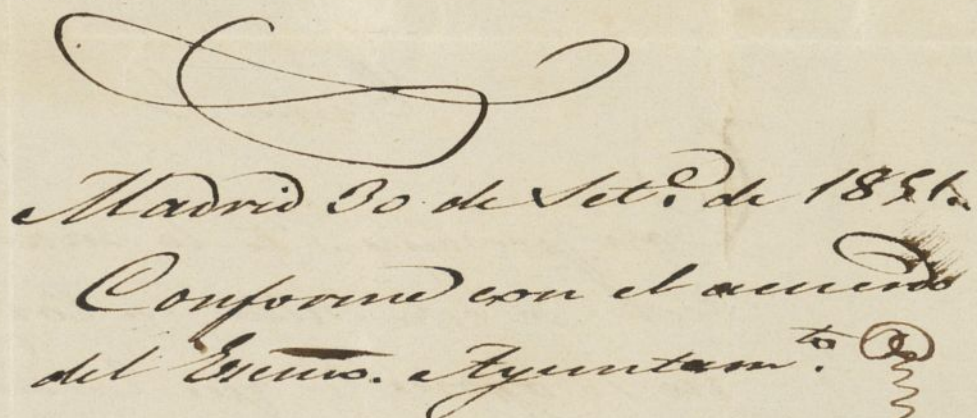 Madrid 30 de Set.e de 1851.
Conforme con el acuerdo
del Excmo. Ayuntam.to